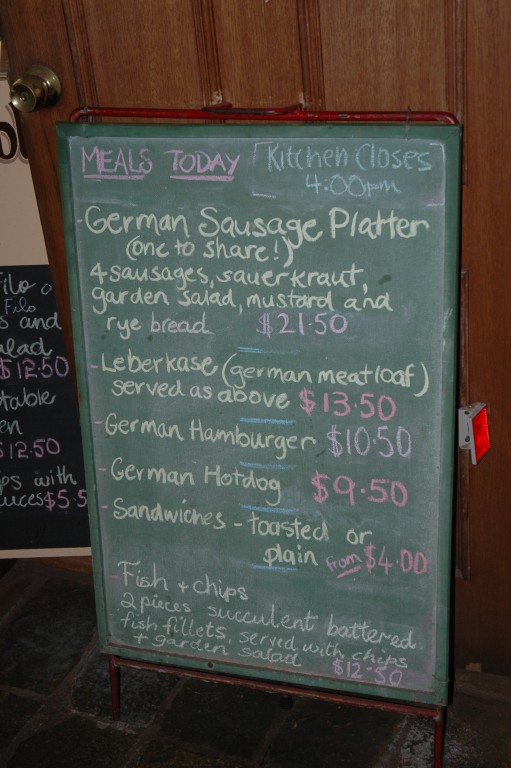 MEALS TODAY
Kitchen Closes
4:00pm
- German Sausage Platter
(one to share!)
4 sausages, sauerkraut,
garden salad, mustard and
rye bread $21.50
- Leberkase (german meatloaf)
served as above $13.50
- German Hamburger $10.50
- German Hotdog $9.50
- Sandwiches - toasted or
plain from $4.00
- Fish + chips
2 pieces succulent battered
fish fillets, served with chips
+ garden salad $12.50
Filo
and
$12.50
$12.50
with
$5.5